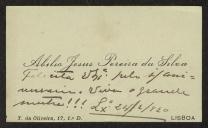 Abilio Jesus Pereira da Silva
Felicita V. Ex.ª pelo s/ ani-
versario. Viva o grande
mestre!!! Lx.ª 24/2/920
T. da Oliveira, 17, 1.º D. LISBOA